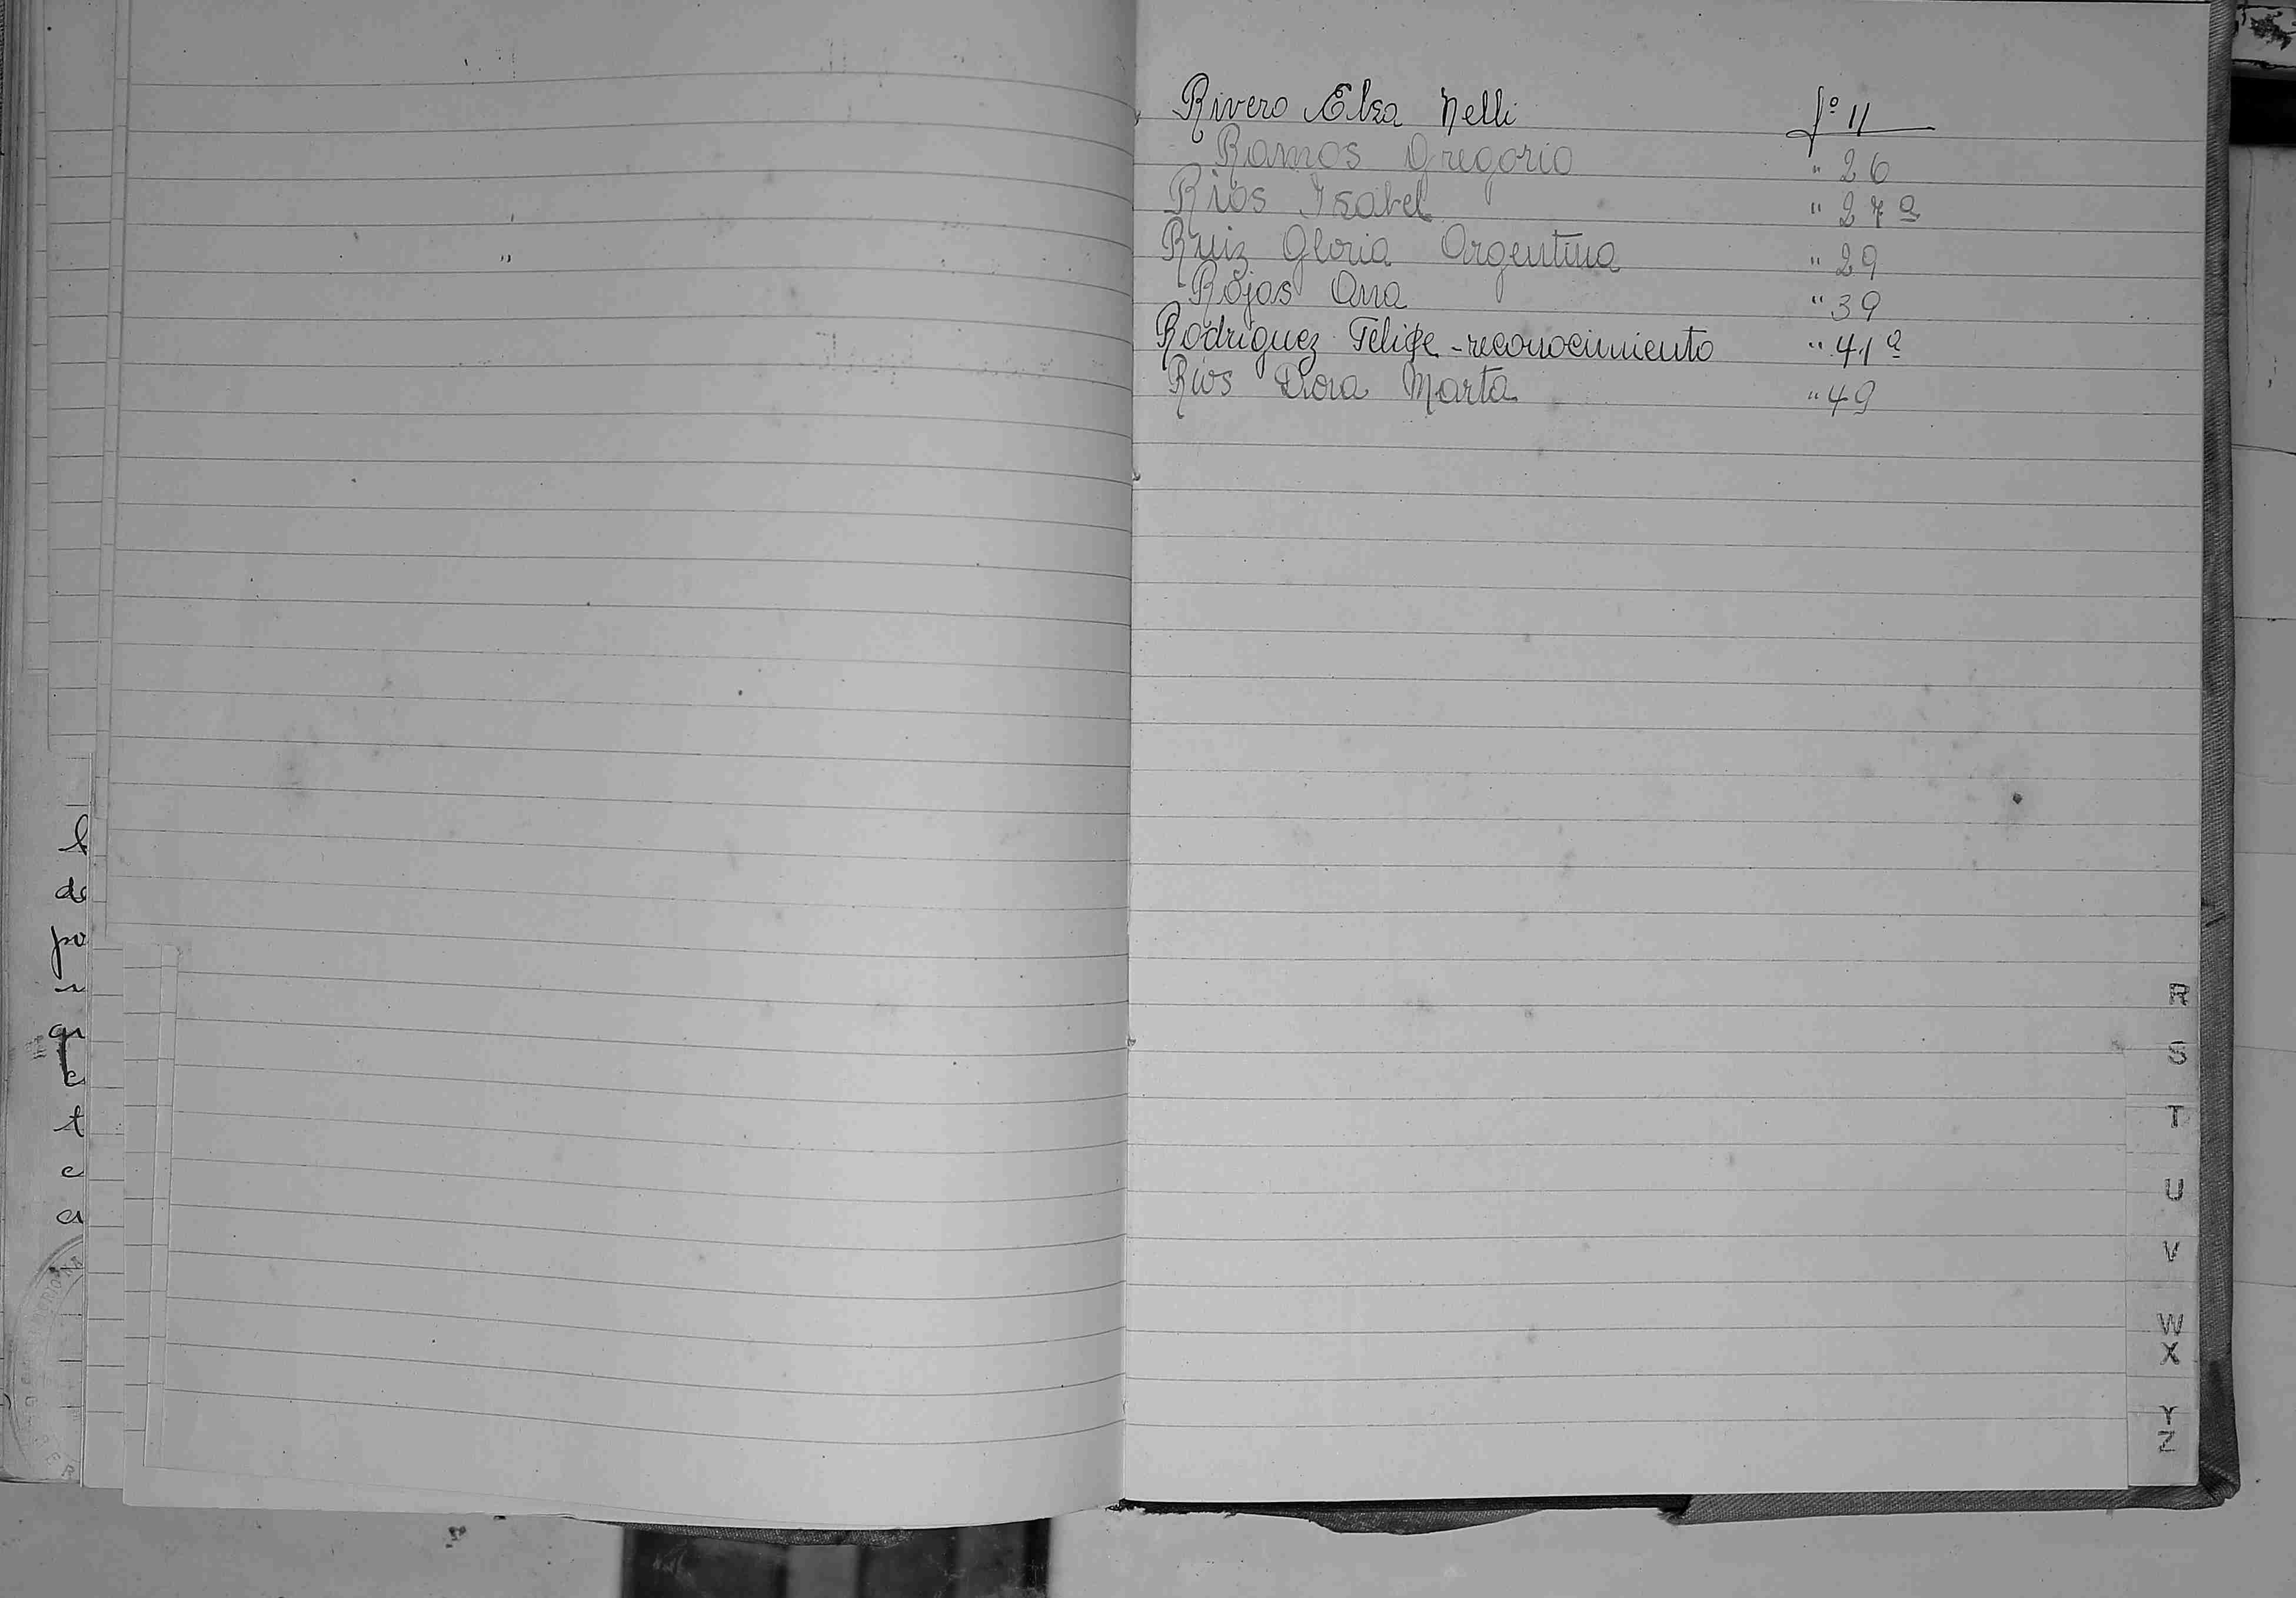 Rivero Elsa Nelli fº 11
Ramos Gregorio " 26
Rios Isabel " 27 a
Ruiz Gloria Argentina " 29
Rojas Ana " 39
Rodriguez Felipe - reconocimiento " 41 a
Rios Dora Marta " 49
l
de
po
qu
t
c
a
R
S
T
U
V
W
X
Y
Z